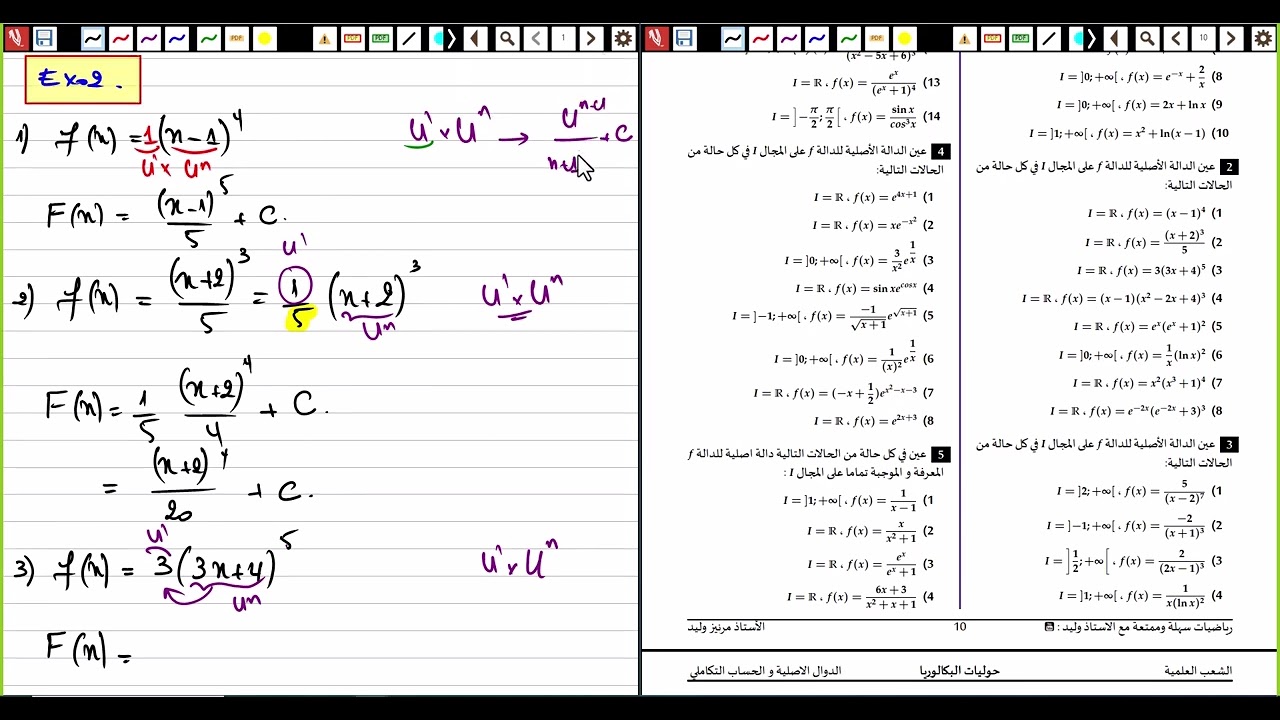 Ex 2.
1) f(x) = 1(x-1)^4
u' x u^n
u' x u^n → u^{n+1}/(n+1) + C
F(x) = (x-1)^5/5 + C.
2) f(x) = (x+2)^3/5 = 1/5 (x+2)^3
u' u^n
u' x u^n
F(x) = 1/5 (x+2)^4/4 + C.
= (x+2)^4/20 + C.
3) f(x) = 3(3x+4)^5
u' u^n
u' x u^n
F(x) =
1
10
(x² − 5x + 6)³
13) f(x) = e^x/(e^x + 1)^4 ، I = ℝ
14) f(x) = sin x/cos³x ، I = ]−π/2; π/2[
4 عين الدالة الأصلية للدالة f على المجال I في كل حالة من
الحالات التالية:
1) f(x) = e^{4x+1} ، I = ℝ
2) f(x) = xe^{−x²} ، I = ℝ
3) f(x) = 3/x² e^{1/x} ، I = ]0; +∞[
4) f(x) = sin xe^{cosx} ، I = ℝ
5) f(x) = −1/√(x+1) e^{√(x+1)} ، I = ]−1; +∞[
6) f(x) = 1/(x)² e^{1/x} ، I = ]0; +∞[
7) f(x) = (−x + 1/2)e^{x²−x−3} ، I = ℝ
8) f(x) = e^{2x+3} ، I = ℝ
5 عين في كل حالة من الحالات التالية دالة اصلية للدالة f
المعرفة و الموجبة تماما على المجال I :
1) f(x) = 1/(x − 1) ، I = ]1; +∞[
2) f(x) = x/(x² + 1) ، I = ℝ
3) f(x) = e^x/(e^x + 1) ، I = ℝ
4) f(x) = (6x + 3)/(x² + x + 1) ، I = ℝ
8) f(x) = e^{−x} + 2/x ، I = ]0; +∞[
9) f(x) = 2x + ln x ، I = ]0; +∞[
10) f(x) = x² + ln(x − 1) ، I = ]1; +∞[
2 عين الدالة الأصلية للدالة f على المجال I في كل حالة من
الحالات التالية:
1) f(x) = (x − 1)^4 ، I = ℝ
2) f(x) = (x + 2)³/5 ، I = ℝ
3) f(x) = 3(3x + 4)^5 ، I = ℝ
4) f(x) = (x − 1)(x² − 2x + 4)³ ، I = ℝ
5) f(x) = e^x(e^x + 1)² ، I = ℝ
6) f(x) = 1/x (ln x)² ، I = ]0; +∞[
7) f(x) = x²(x³ + 1)^4 ، I = ℝ
8) f(x) = e^{−2x}(e^{−2x} + 3)³ ، I = ℝ
3 عين الدالة الأصلية للدالة f على المجال I في كل حالة من
الحالات التالية:
1) f(x) = 5/(x − 2)^7 ، I = ]2; +∞[
2) f(x) = −2/(x + 1)³ ، I = ]−1; +∞[
3) f(x) = 2/(2x − 1)³ ، I = ]1/2; +∞[
4) f(x) = 1/x(ln x)² ، I = ]1; +∞[
رياضيات سهلة وممتعة مع الاستاذ وليد :
10
الأستاذ مرنيز وليد
الشعب العلمية
حوليات البكالوريا
الدوال الاصلية و الحساب التكاملي